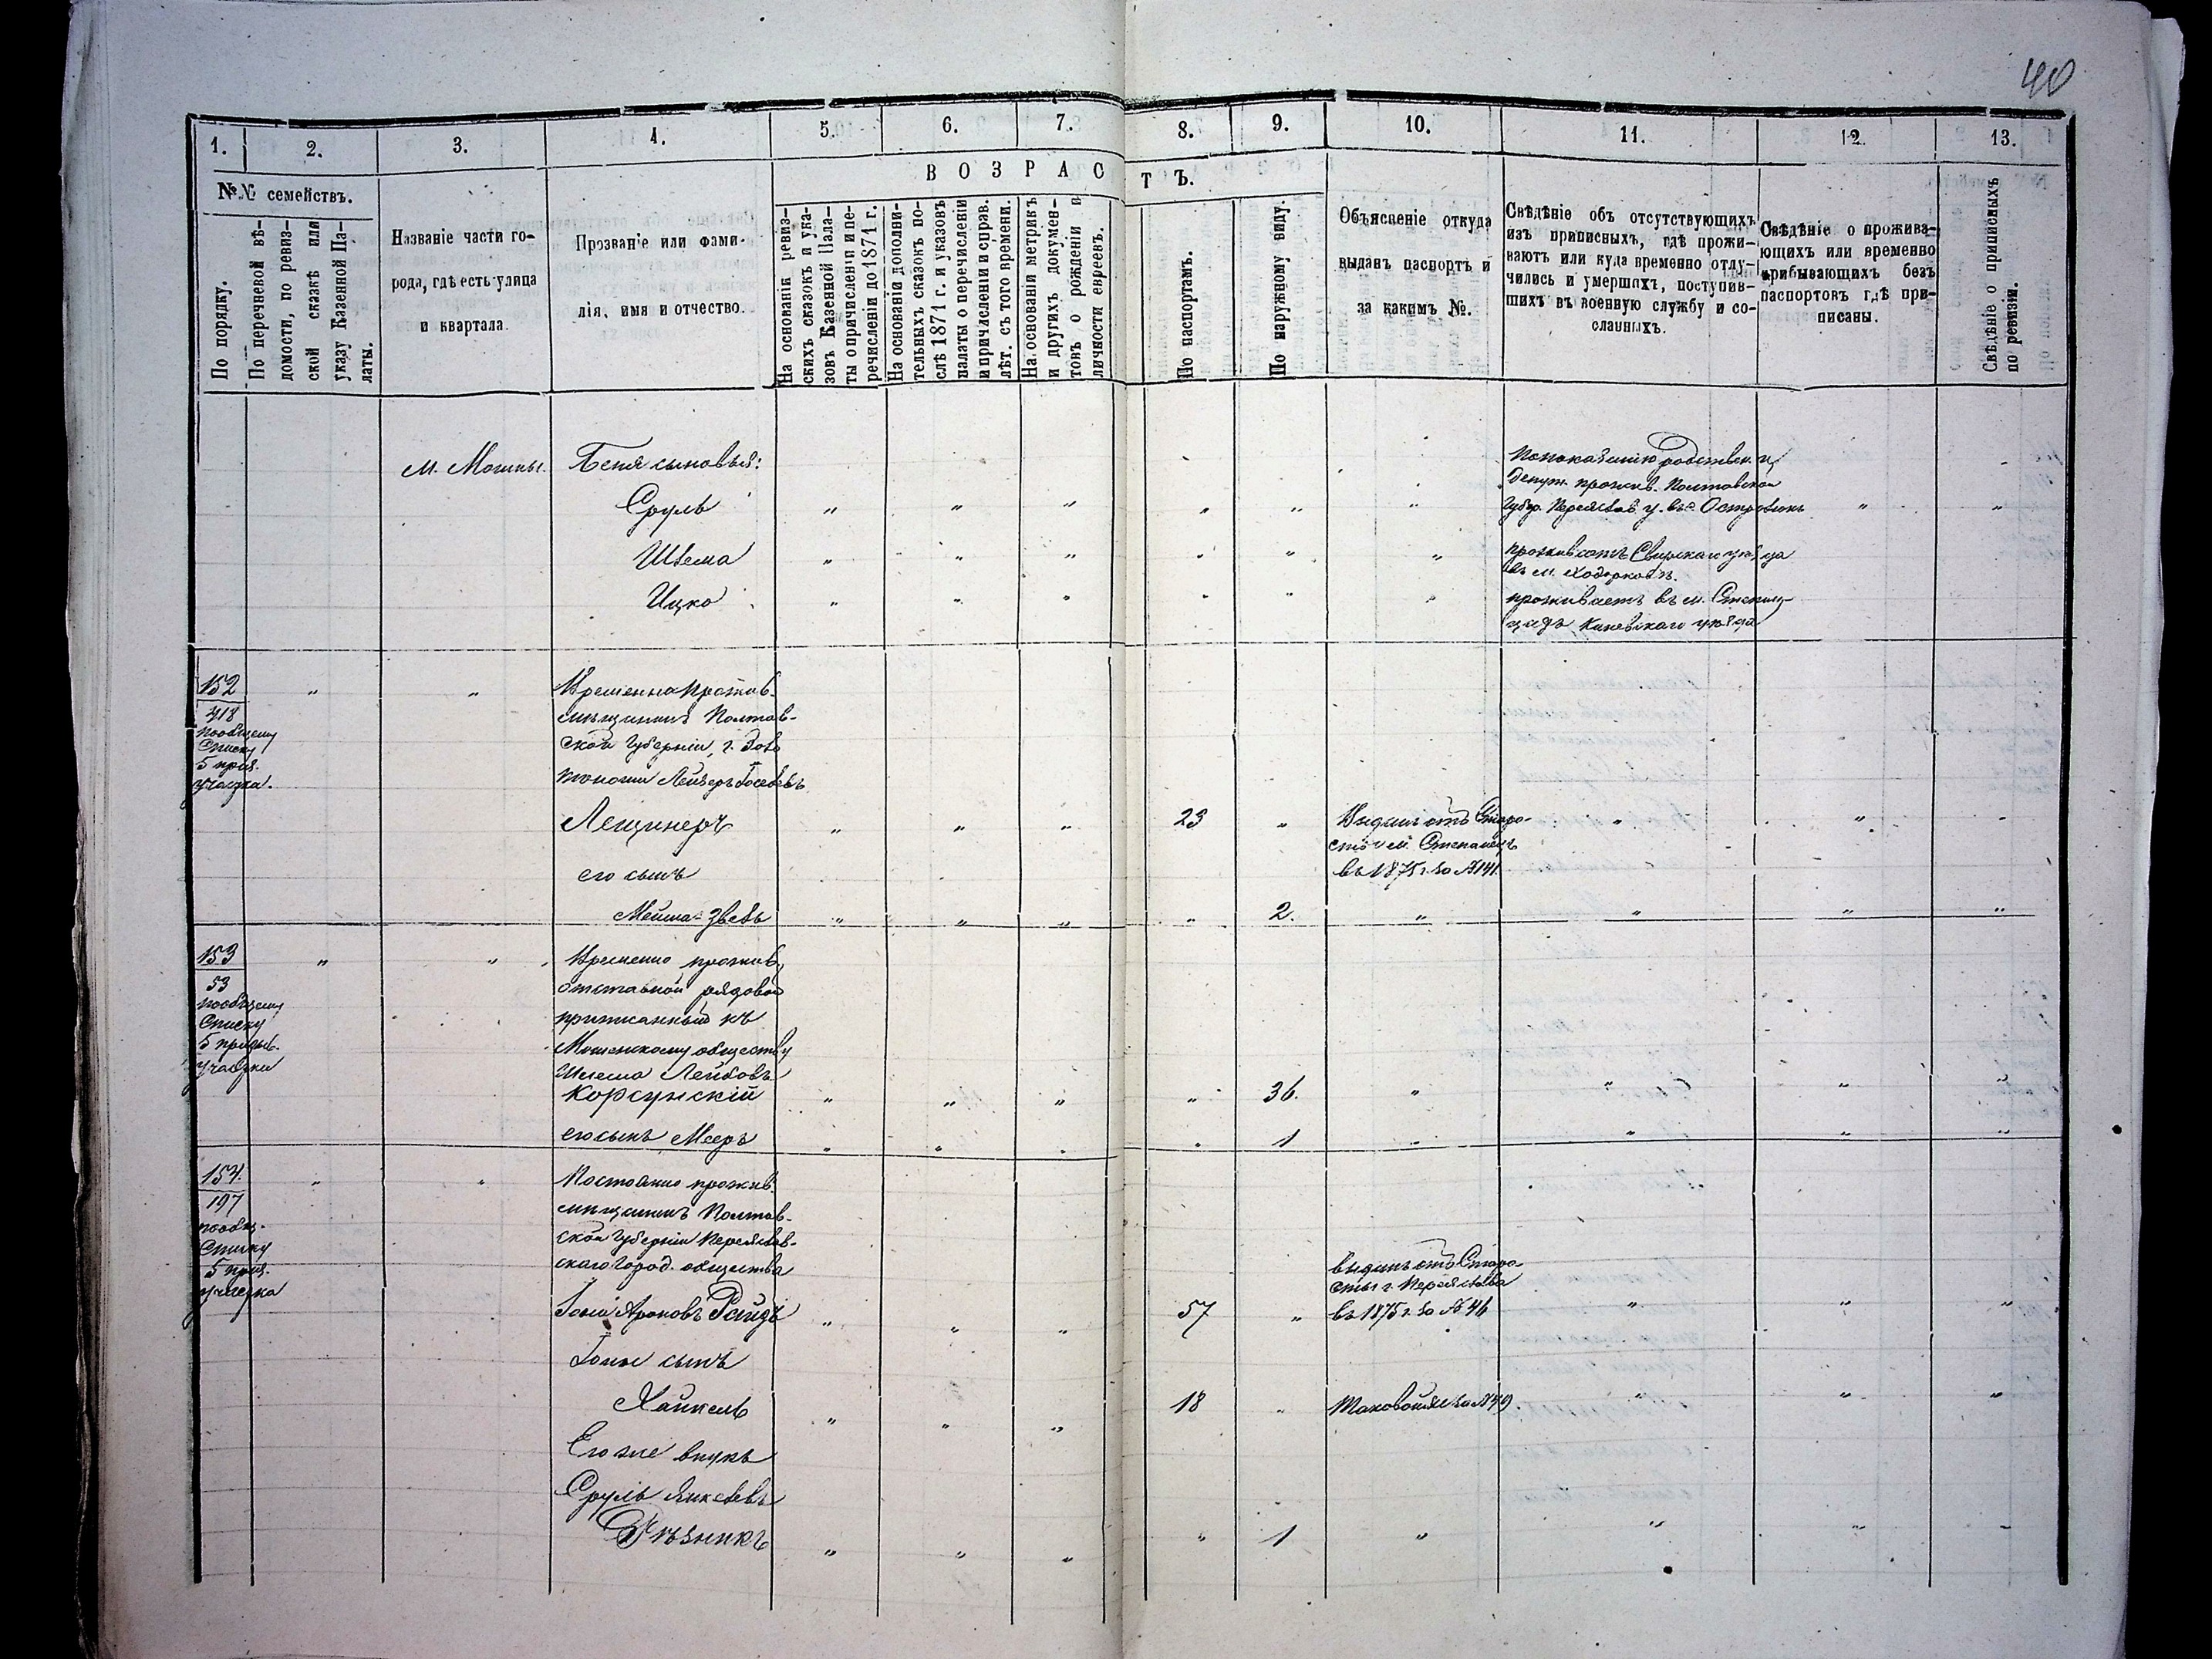 40
1.
2.
3.
4.
5.
6.
7.
8.
9.
10.
11.
12.
13.
№№ семействъ.
По порядку.
По перечневой вѣ-
домости, по ревиз-
ской сказкѣ или
указу Казенной Па-
латы.
Названіе части го-
рода, гдѣ есть улица
и квартала.
Прозваніе или фами-
лія, имя и отчество.
ВОЗРАСТЪ.
На основаніи ревиз-
скихъ сказокъ и ука-
зовъ Казенной Пала-
ты о причисленіи и пе-
речисленіи до 1871 г.
На основаніи дополни-
тельныхъ сказокъ по-
слѣ 1871 г. и указовъ
палаты о перечисленіи
и причисленіи и справ.
лѣт. съ того времени.
На основаніи метрикъ
и другихъ докумен-
товъ о рожденіи и
личности евреевъ.
По паспортамъ.
По наружному виду.
Объясненіе откуда
выданъ паспортъ и
за какимъ №.
Свѣдѣніе объ отсутствующихъ
изъ приписныхъ, гдѣ прожи-
ваютъ или куда временно отлу-
чились и умершихъ, поступив-
шихъ въ военную службу и со-
сланныхъ.
Свѣдѣніе о прожива-
ющихъ или временно
прибывающихъ безъ
паспортовъ гдѣ при-
писаны.
Свѣдѣніе о приписныхъ
по ревизіи.
м. Мошны.
Беня сыновья:
По показанію родствен. и
депут. прожив. Полтавской
Сруль
Губер. Переяслав. у. въ с.
Шлема
проживаетъ Сквирскаго уѣзда
въ м. Ходорковѣ.
Ицко
проживаетъ въ м. Степан-
цахъ Каневскаго уѣзда
152
418
по общему
списку
5 приз.
участка.
Временно прожив.
мѣщанинъ Полтав-
ской Губерніи, г. Золо
тоноши Лейзеръ Іосевъ
Лещинеръ
23
Выданъ отъ Старо-
сты м. Степанецъ
въ 1875 г. за №141.
его сынъ
2.
153
53
по общему
списку
5 призыв.
участка
Временно прожив.
отставной рядовой
приписанный къ
Мошенскому обществу
Лейбовъ
Корсунскій
36.
его сынъ Мееръ
1
154.
197
по общ.
списку
5 приз.
участка
Постоянно прожив.
мѣщанинъ Полтав-
ской Губерніи Переяслав-
скаго Город. общества
Іона Ароновъ
57
выданъ отъ Старо-
сты г. Переяслава
въ 1875 г. за №46
Іоны сынъ
Хайкель
18
Таковой же за №49.
Его же внукъ
Сруль Янкелевъ
Рѣзникъ
1